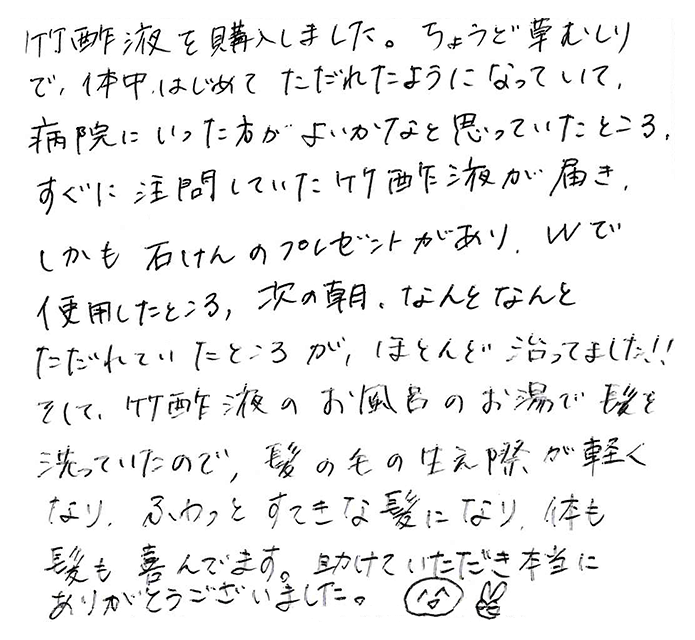 竹酢液を購入しました。ちょうど草むしり
で、体中、はじめて ただれたようになっていて、
病院にいった方がよいかなと思っていたところ、
すぐに注問していた竹酢液が届き、
しかも 石けんのプレゼントがあり、Wで
使用したところ、次の朝、なんとなんと
ただれていたところが、ほとんど治ってました!!
そして、竹酢液のお風呂のお湯で髪を
洗っていたので、髪の毛の生え際が軽く
なり、ふわっとすてきな髪になり、体も
髪も喜んでます。助けていただき本当に
ありがとうございました。